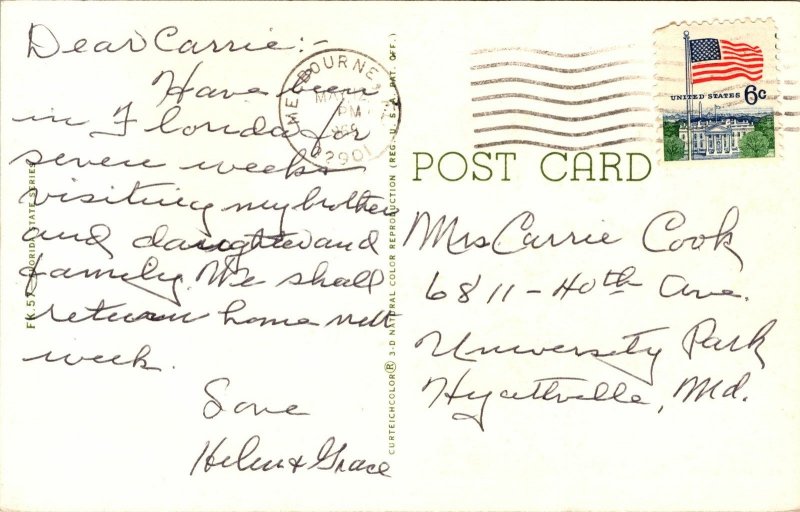 Dear Carrie:-
Have been
in Florida for
seven weeks
visiting my brother
and daughter and
family. We shall
return home next
week.
Love
Helen & Grace
FLORIDA STATE SERIES
CURTEICHCOLOR® 3-D NATURAL COLOR REPRODUCTION (REG. U.S.A. PAT. OFF.)
MELBOURNE
PM
32901
UNITED STATES 6c
POST CARD
Mrs Carrie Cook
6811-40th Ave.
University Park
Hyattville, Md.